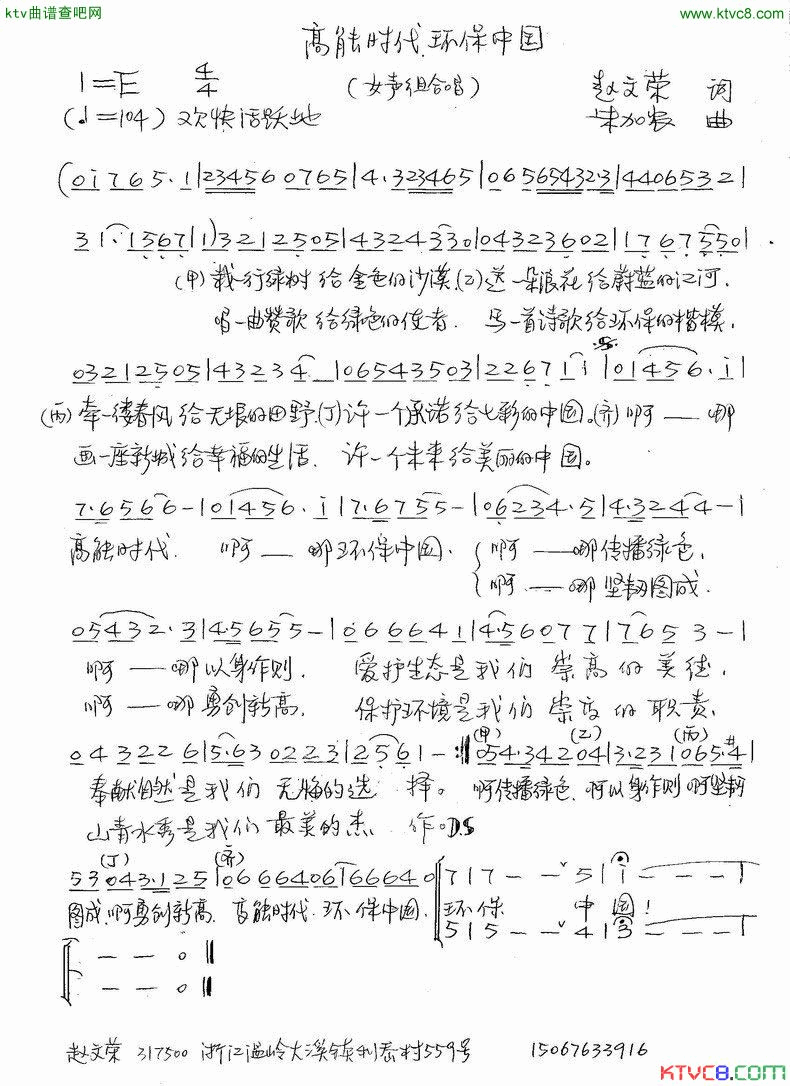 ktv曲谱查吧网
www.ktvc8.com
高能时代 环保中国
1=E 4/4 (女声组合唱) 赵文荣 词
(♩=104) 欢快活跃地 朱加农 曲
(0i765.1|234560765|4.323465|065654323|44065321|
31.1567|1)3212505|43243330|04323602|17675550|
(甲)栽一行绿树给金色的沙漠,(乙)送一朵浪花给蔚蓝的江河,
唱一曲赞歌给绿色的使者. 写一首诗歌给环保的楷模,
03212505|43234|06543503|22671i|01456.i|
(丙)牵一缕春风给无垠的田野,(丁)许一个承诺给七彩的中国。(齐)啊——哪
画一座新城给幸福的生活. 许一个未来给美丽的中国。
7.6566-|01456.i|7.6755-|06234.5|4.3244-|
高能时代. 啊——哪环保中国. 啊——哪传播绿色,
啊——哪坚韧图成.
05432.3|4.5655-|0666641|4.56077|765 3-|
啊——哪以身作则. 爱护生态是我们崇高的美德,
啊——哪勇创新高. 保护环境是我们 的职责,
043226|5.630223|2561-:‖054.34204|3.231065.#4|
(甲) (乙) (丙)
奉献自然是我们无悔的选择。 啊传播绿色.啊以身作则 啊坚韧
山青水秀是我们最美的杰作。DS
(丁) (齐)
53043.125|06664061666640|71 7--ˇ5|i---|
图成,啊勇创新高. 高能时代.环保中国. 环保 中国!
515--ˇ4|3---|
--0‖
--0‖
赵文荣 317500 浙江温岭大溪镇利泰村559号 15067633916
KTVC8.COM